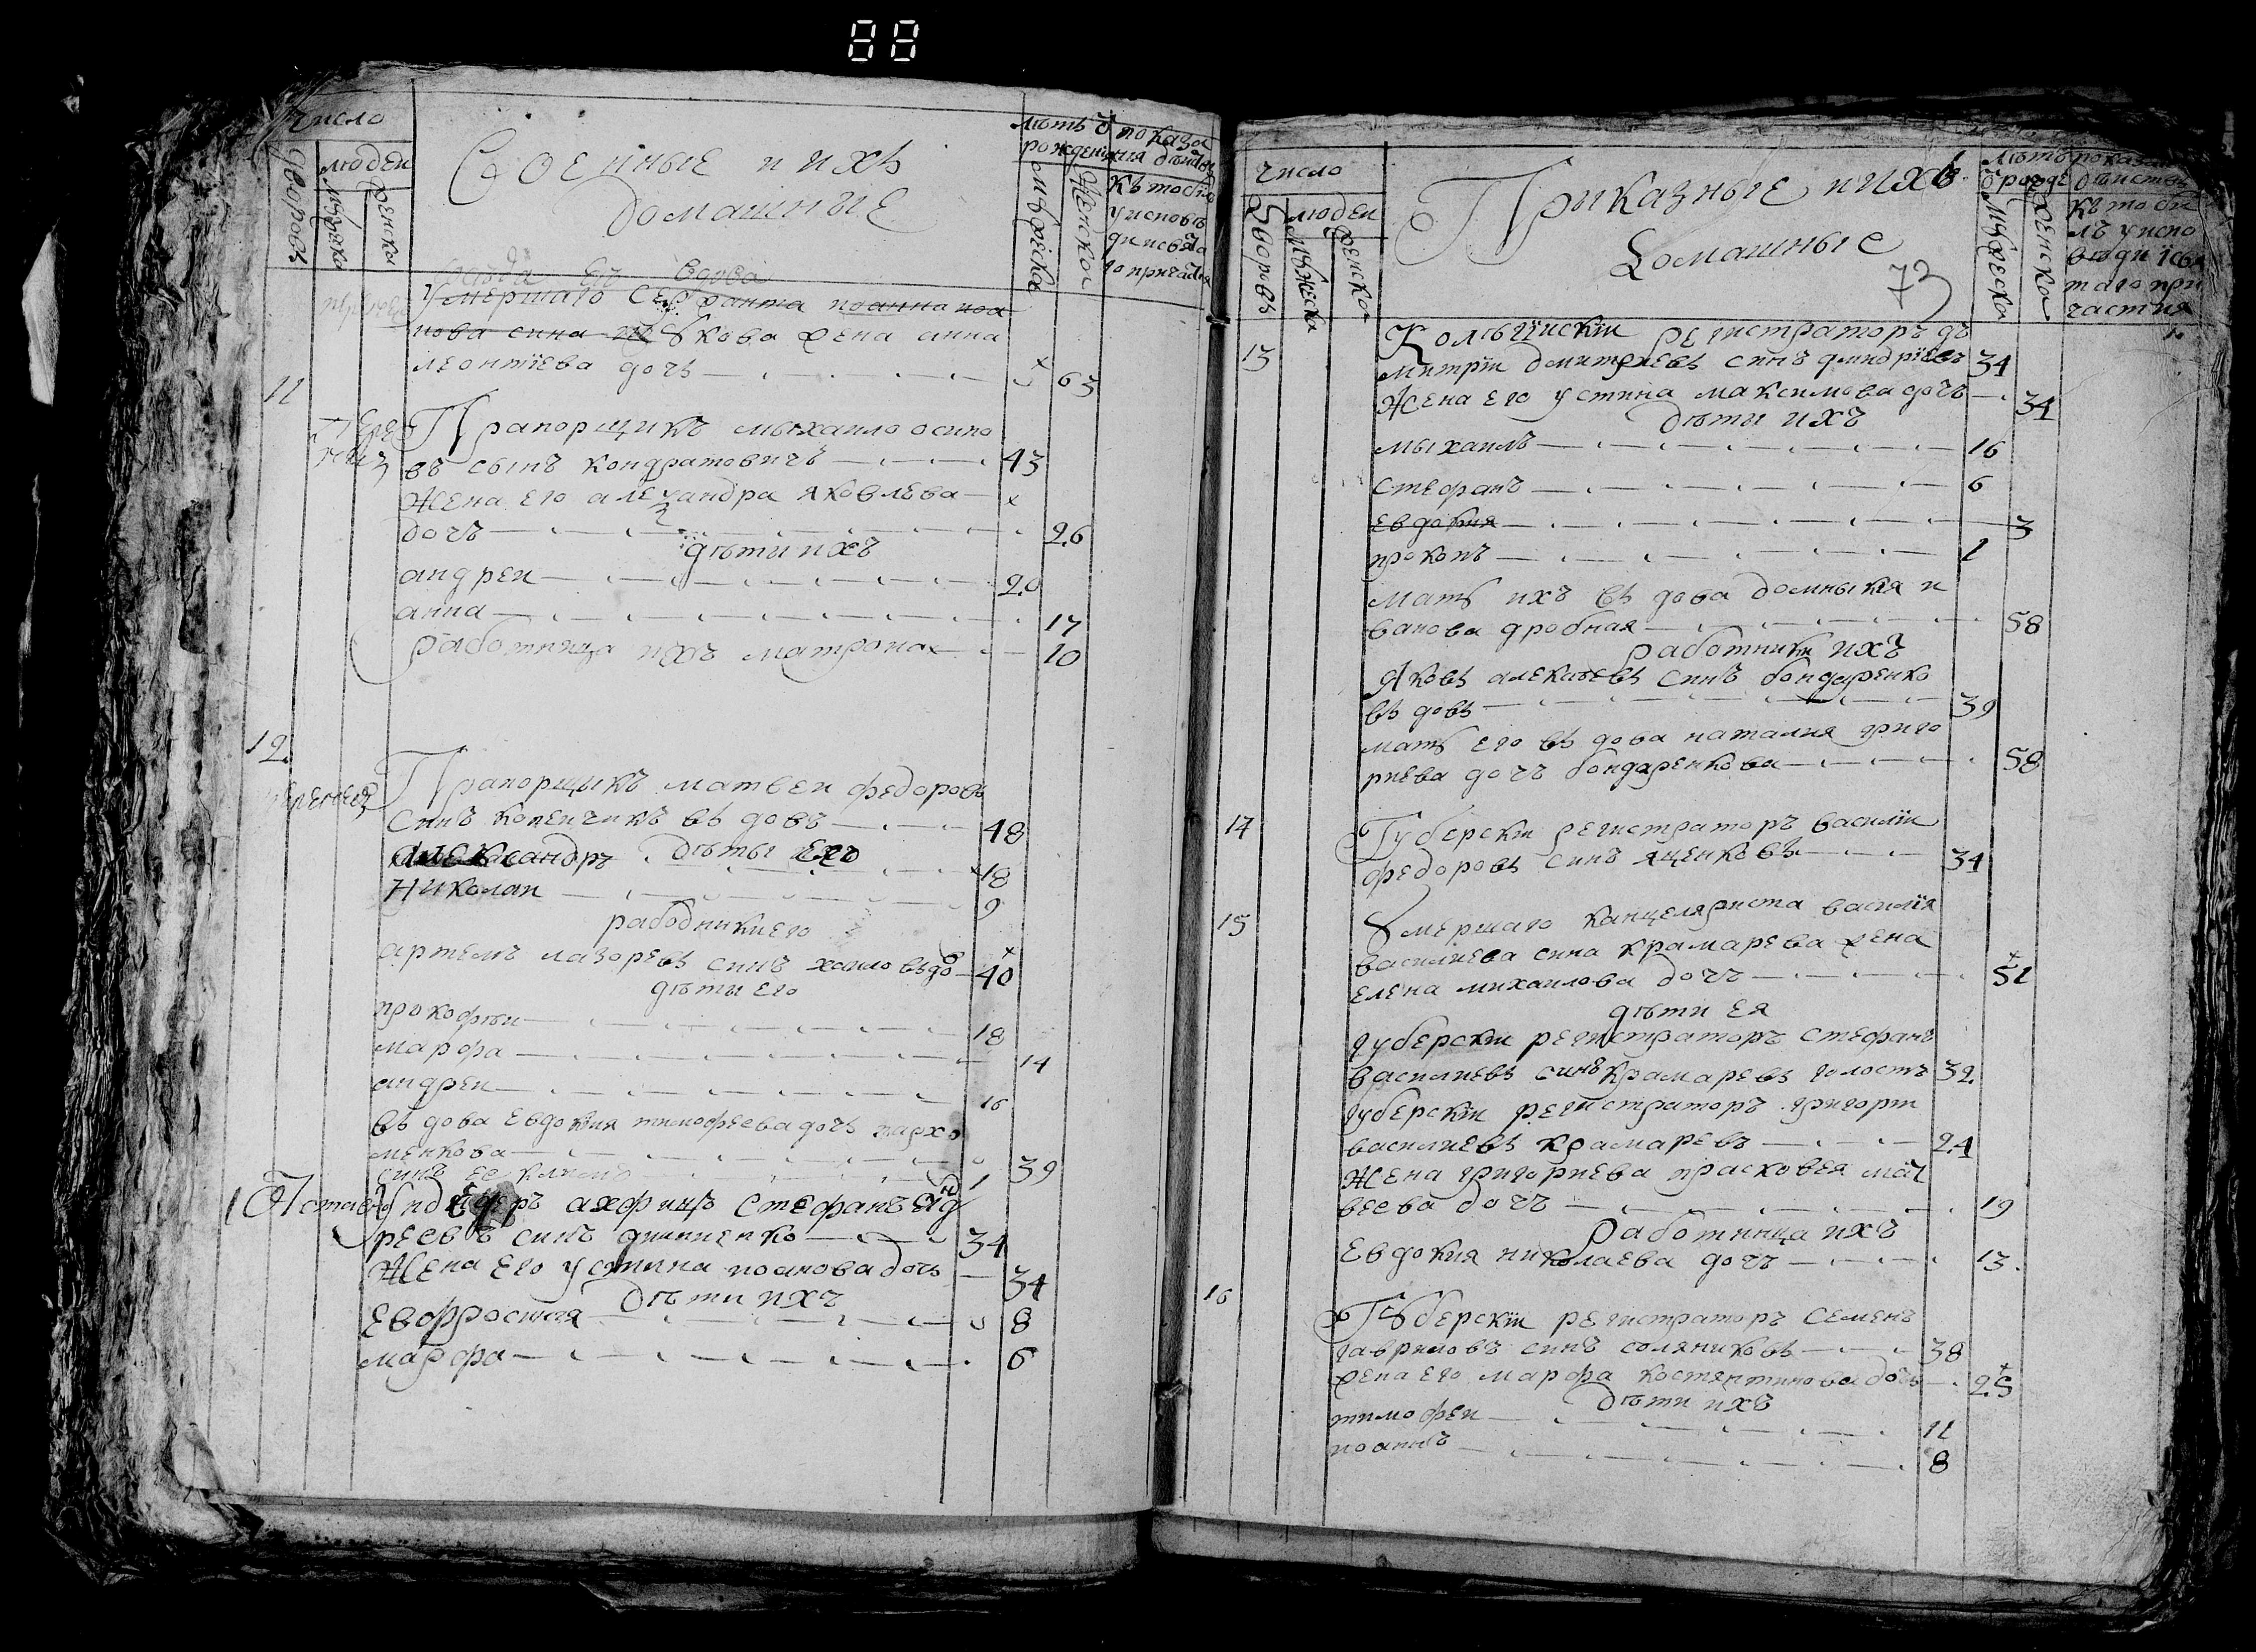 88
число
дворовъ
людеи
мужеска
женска
Военные и ихъ
домашные
лѣтъ ѿ рожденїя
мужеска
женска
показанїя дѣиств
кто былъ
у исповѣ
ди исвѧта
го причаст
вдова
Умершаго Сержанта иоанна иоа
нова сина кова жена анна
леонтїева дочъ 63
11
Прапорщикъ мыхаило осипо
въ сынъ кондратовичъ 43
Жена его алеѯандра яковлева
дочъ 26
дѣти ихъ
андреи 20
анна 17
работница ихъ матрона 10
12
Прапорщыкъ матвеи федоровъ
синъ копеичикъ въдовъ 48
Александръ дѣты его 18
Николаи 9
работники его
артемъ лазоревъ синъ въдо 40
дѣти его
прокофѣи 18
марфа 14
андреи 16
въдова евдокия тимофеева дочъ пархо
менкова 39
синъ ее климъ 1
Ундеръ ахфицѣръ стефанъ анд
реевъ синъ 34
Жена его устина иоанова дочъ 34
Дѣти ихъ
Евфросиния 8
марфа 6
число
дворовъ
людеи
мужеска
женска
Приказные и ихъ
Домашные
73
лѣтъ
ѿ рожде
мужеска
женска
показан
дѣиств
кто бы
лъ у испо
вѣди исвя
таго при
частия
13
Колѣжискїи регистраторъ ди
митрїи димитриевъ синъ 34
Жена его устина максимова дочъ 34
дѣты ихъ
мыхаилъ 16
стефанъ 6
евдокия 3
прокопъ 1
мать ихъ въдова домникия и
ванова дробная 58
работники ихъ
Яковъ алексѣевъ синъ бондаренко
въдовъ 39
мать его въдова наталия григо
риева дочъ бондаренкова 58
14
Губерскїи регистраторъ василїи
федоровъ синъ яценковъ 34
15
Умершаго канцеляриста василїя
василиева сина крамарева жена
елена михаилова дочъ 51
дѣти ея
губерскїи регистраторъ стефанъ
василиевъ синъ крамаревъ холостъ 32
губерскїи регистраторъ григорїи
василиевъ крамаревъ 24
Жена григориева прасковея мат
веева дочъ 19
работница ихъ
Евдокия николаева дочъ 13
16
Губерскїи регистраторъ семенъ
гавриловъ синъ соляниковъ 38
жена его марфа костянтинова дочъ 25
дѣти ихъ
тимофеи 11
иоаннъ 8